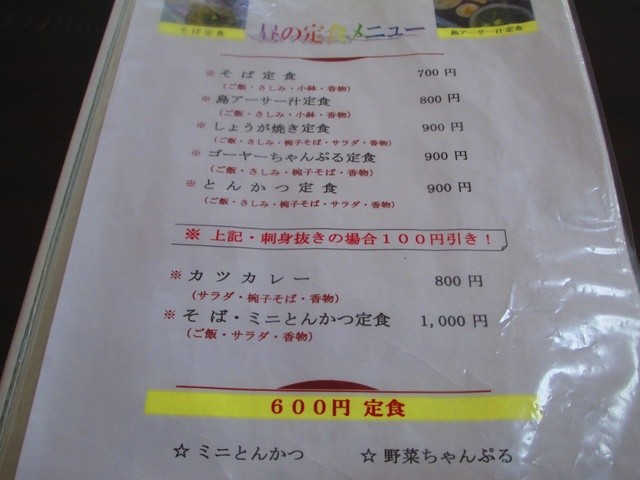 そば定食
島アーサー汁定食
昼の定食メニュー
※ そば定食 700円
（ご飯・さしみ・小鉢・香物）
※ 島アーサー汁定食 800円
（ご飯・さしみ・小鉢・香物）
※ しょうが焼き定食 900円
（ご飯・さしみ・椀子そば・サラダ・香物）
※ ゴーヤーちゃんぷる定食 900円
（ご飯・さしみ・椀子そば・香物）
※ とんかつ定食 900円
（ご飯・さしみ・椀子そば・サラダ・香物）
※ 上記・刺身抜きの場合１００円引き！
※ カツカレー 800円
（サラダ・椀子そば・香物）
※ そば・ミニとんかつ定食 1,000円
（ご飯・サラダ・香物）
６００円 定食
☆ ミニとんかつ ☆ 野菜ちゃんぷる